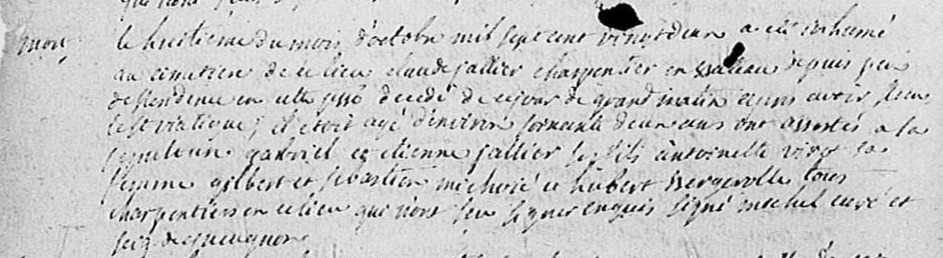 mort
le huitieme du mois d'octobre mil sept cent vingt deux a eté inhumé
au cimetiere de ce lieu claude jallier charpentier en bateau depuis peu
en cette psse decedé de ce jour de grand matin apres avoir
le st viatique, il étoit agé d'environ soixante deux ans ont assistés a la
sepulture gabriel et etienne jallier ses fils antoinette virot sa
femme gilbert et sebastien michorié et hubert bergerolle tous
charpentiers en ce lieu qui n'ont sçu signer enquis signé michel curé et